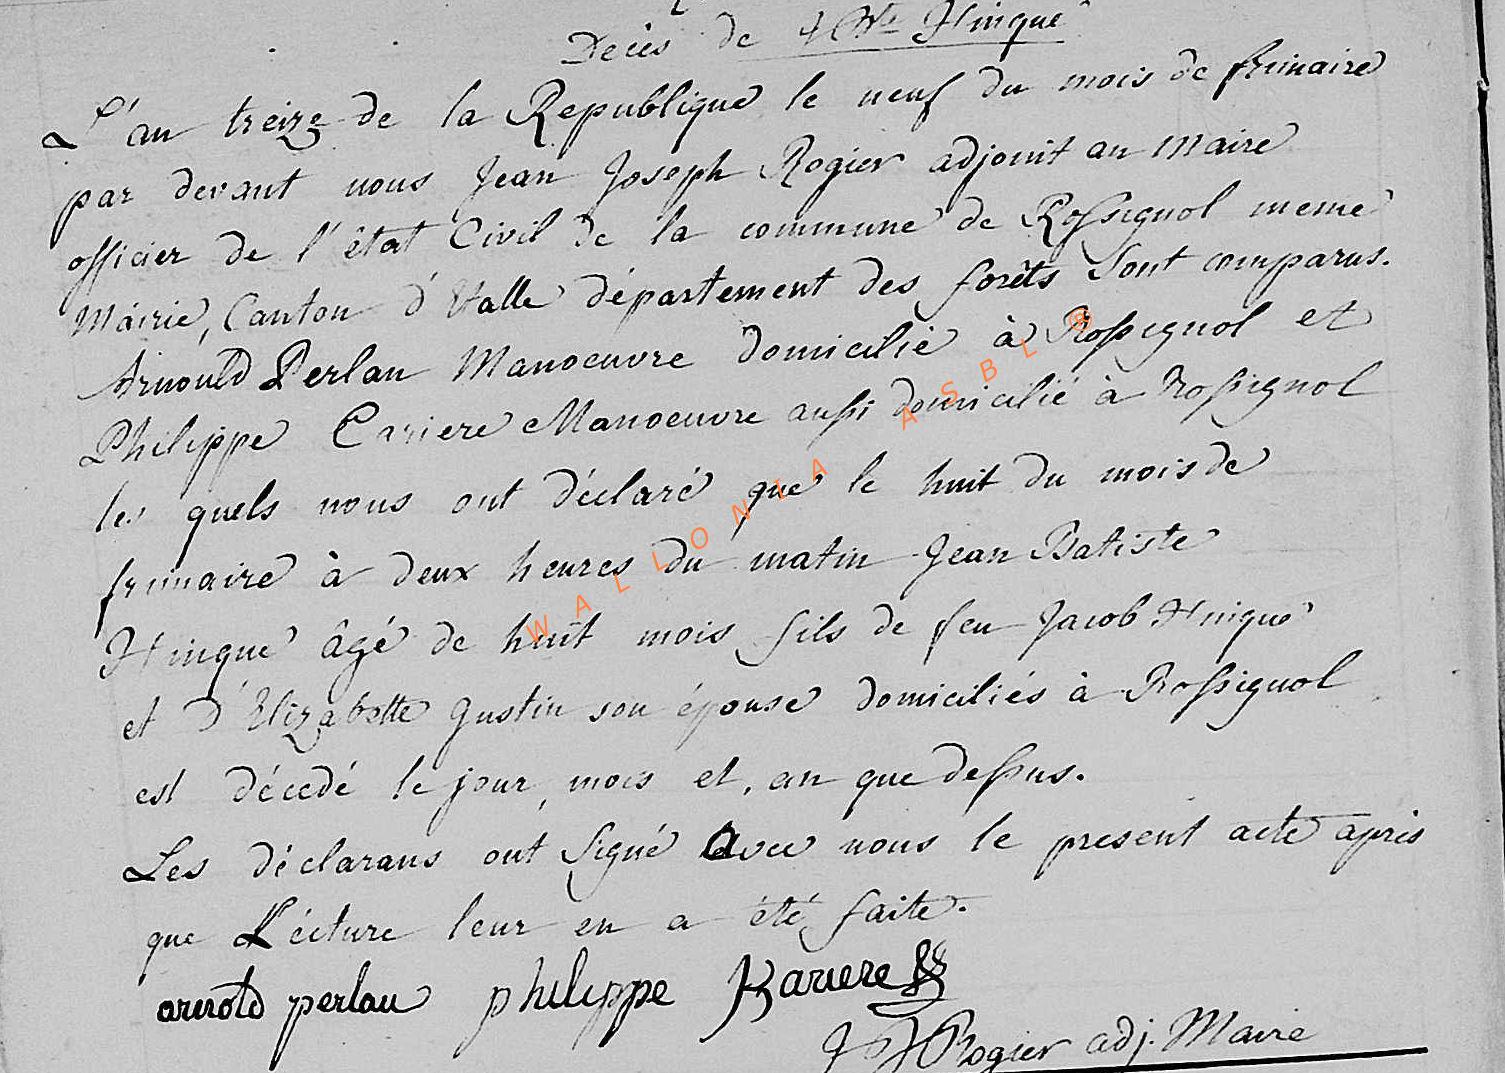 Décès de J Bte Hinque
L'an treize de la Republique le neuf du mois de frimaire
par devant nous Jean Joseph Rogier adjoint au Maire
officier de l'êtat Civil de la commune de Rossignol meme
Mairie, Canton d'Etalle département des forêts sont comparus.
Arnould Perlau Manoeuvre domicilié à Rossignol et
Philippe Cariere Manoeuvre aussi domicilié à Rossignol
les quels nous ont déclaré que le huit du mois de
frimaire à deux heures du matin Jean Batiste
Hinque âgé de huit mois fils de feu Jacob Hinque
et D'Elizabette Gustin son épouse domiciliés à Rossignol
est décedé le jour, mois et, an que dessus.
Les déclarans ont signé avec nous le present acte apris
que Lécture leur en a été faite.
arnold perlau philippe Kariere
JJ Rogier adj. Maire
WALLONIA ASBL ®